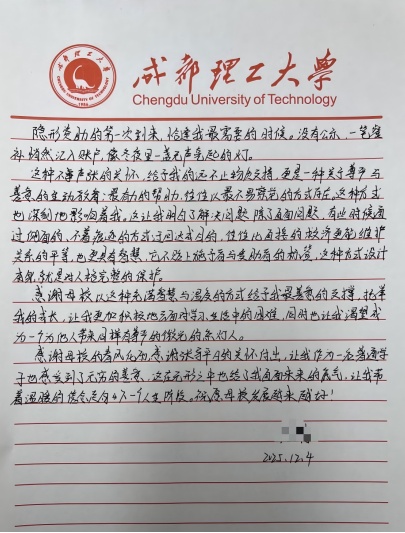 成都理工大学
CHENGDU UNIVERSITY OF TECHNOLOGY
1956
成都理工大学
Chengdu University of Technology
隐形资助的第一次到来，恰逢我最需要的时候。没有公示，一笔资
补悄然汇入账户，像冬夜里一盏无声亮起的灯。
这种不事声张的关怀，给予我的远不止物质支持，更是一种关于尊严与
善意的生动教育：最有力的帮助，往往以最不易察觉的方式存在。这种方式
也深刻地影响着我，这让我明白了解决问题，除了直面问题，有些时候通
过侧面的、不着痕迹的方式达成目的，往往比直接的救济更能维护
关系的平等，也更具有智慧，它不路上施予者与受助者的，这种方式设计
本身就是对人格完整的保护。
感谢母校以这种充满智慧与温度的方式给予我最善意的支撑，托举
我的成长，让我更加积极地去面对学习生活中的困难，同时也让我渴望成
为一个为他人带来同样有尊严的微光的点灯人。
感谢母校的春风化雨，感谢学校平日的关怀付出，让我作为一名普通学
子也感受到了无穷的善意，这在无形之中也给了我直面未来的底气，让我带
着温暖的信念走向下一个人生阶段。祝愿母校发展越来越好！
2025.12.4